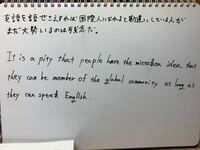 英語を話せさえすれば国際人になれると勘違いしている人が
まだ大勢いるのは残念だ。
It is a pity that people have the mistaken idea that
they can be member of the global community as long as
they can speak English.